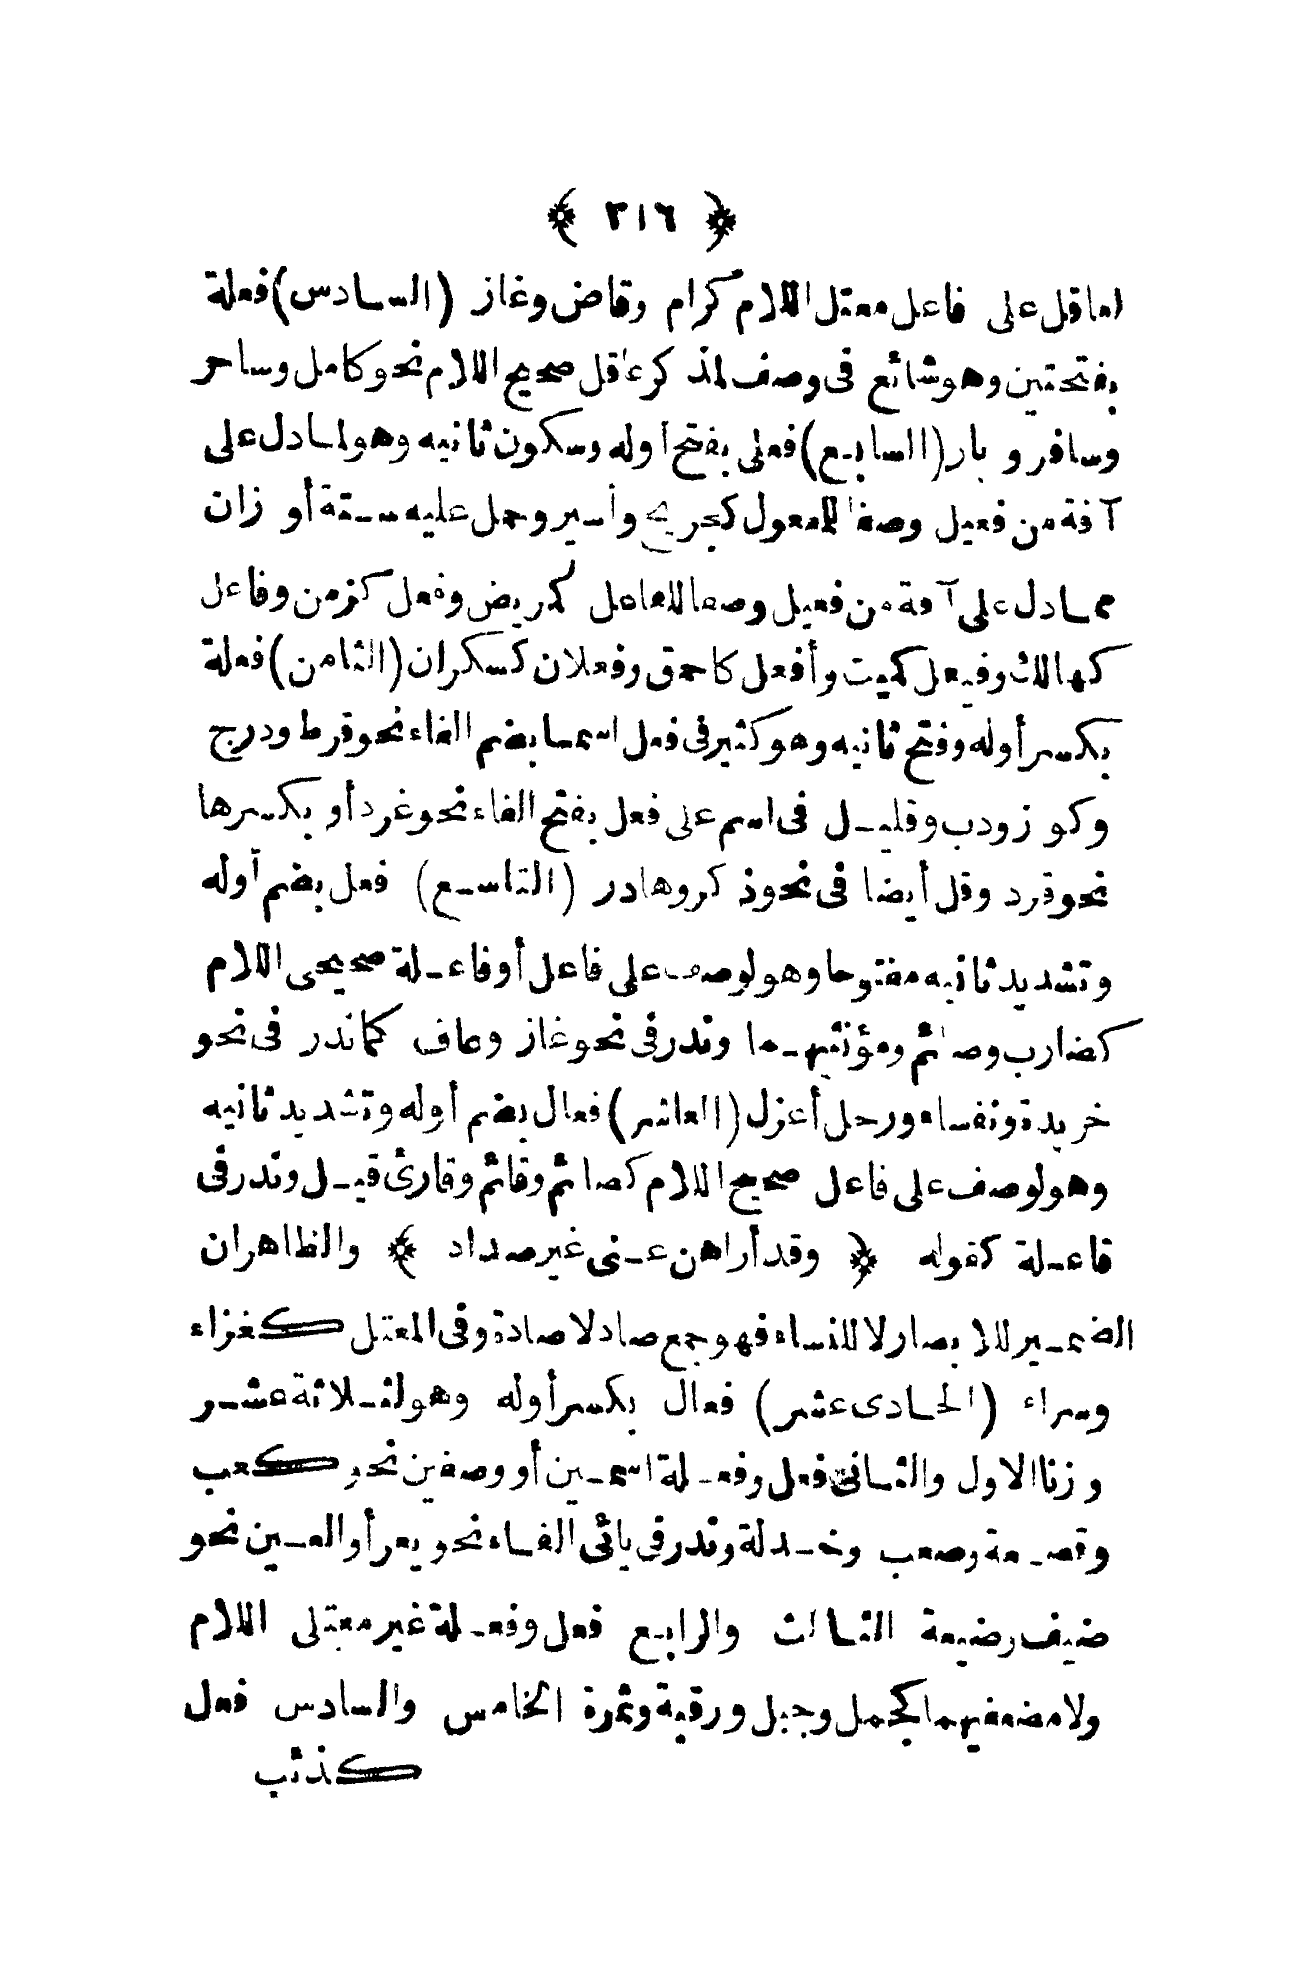 ﴿ ٣١٦ ﴾
لعاقل على فاعل معتل اللام كرام وقاض وغاز (السادس) فعلة
بفتحتين وهو شائع فى وصف لمذكر عاقل صحيح اللام نحو كامل وساحر
وسافر وبار (السابع) فعلى بفتح أوله وسكون ثانيه وهو لما دل على
آفة من فعيل وصفا للمفعول كجريح وأسير وحمل عليه ستة أوزان
مما دل على آفة من فعيل وصفا للفاعل كمريض وفعل كزمن وفاعل
كهالك وفيعل كميت وأفعل كاحمق وفعلان كسكران (الثامن) فعلة
بكسر أوله وفتح ثانيه وهو كثير فى فعل اسما بضم الفاء نحو قرط ودرج
وكوز ودب وقليل فى اسم على فعل بفتح الفاء نحو غرد أو بكسرها
نحو قرد وقل أيضا فى نحو ذكر وهادر (التاسع) فعل بضم أوله
وتشديد ثانيه مفتوحا وهو لوصف على فاعل أو فاعلة صحيحى اللام
كضارب وصائم ومؤنثيهما وندر فى نحو غاز وعاف كما ندر فى نحو
خريدة ونفساء ورجل أعزل (العاشر) فعال بضم أوله وتشديد ثانيه
وهو لوصف على فاعل صحيح اللام كصائم وقائم وقارئ قيل وندر فى
فاعلة كقوله ﴿ وقد أراهن عنى غير صداد ﴾ والظاهر ان
الضمير للابصار لا للنساء فهو جمع صاد لا صادة وفى المعتل كغزاء
وسراء (الحادى عشر) فعال بكسر أوله وهو لثلاثة عشر
وزنا الاول والثانى فعل وفعلة اسمين أو وصفين نحو كعب
وقصعة وصعب وخدلة وندر فى يائى الفاء نحو يعر أو العين نحو
ضيف وضيعة الثالث والرابع فعل وفعلة غير معتلى اللام
ولا مضعفيهما كجمل وجبل ورقبة وثمرة الخامس والسادس فعل
كذئب